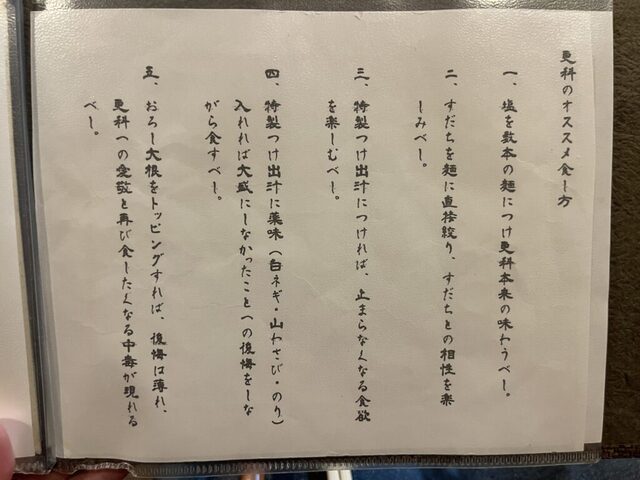 更科のオススメ食し方
一、塩を数本の麺につけ更科本来の味わうべし。
二、すだちを麺に直接絞り、すだちとの相性を楽
しみべし。
三、特製つけ出汁につければ、止まらなくなる食欲
を楽しむべし。
四、特製つけ出汁に薬味(白ネギ・山わさび・のり)
入れれば大盛にしなかったことへの後悔をしな
がら食すべし。
五、おろし大根をトッピングすれば、後悔は薄れ、
更科への愛敬と再び食したくなる中毒が現れる
べし。